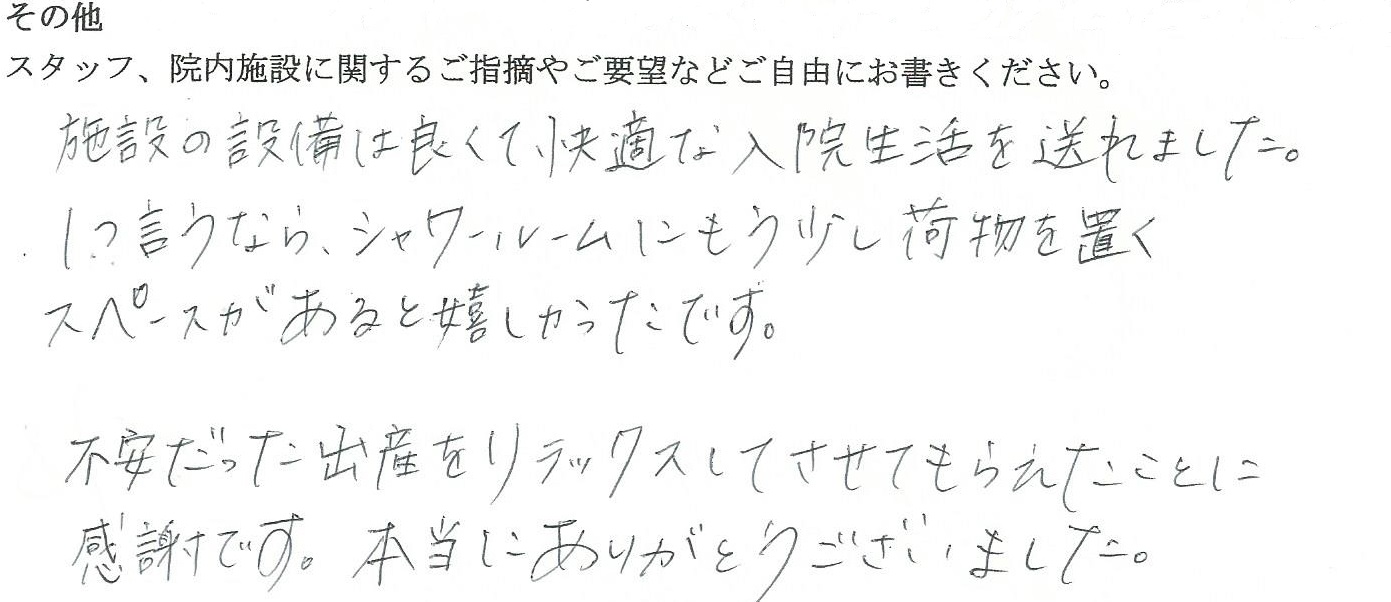 その他
スタッフ、院内施設に関するご指摘やご要望などご自由にお書きください。
施設の設備は良くて、快適な入院生活を送れました。
1つ言うなら、シャワールームにもう少し荷物を置く
スペースがあると嬉しかったです。
不安だった出産をリラックスしてさせてもらえたことに
感謝です。本当にありがとうございました。